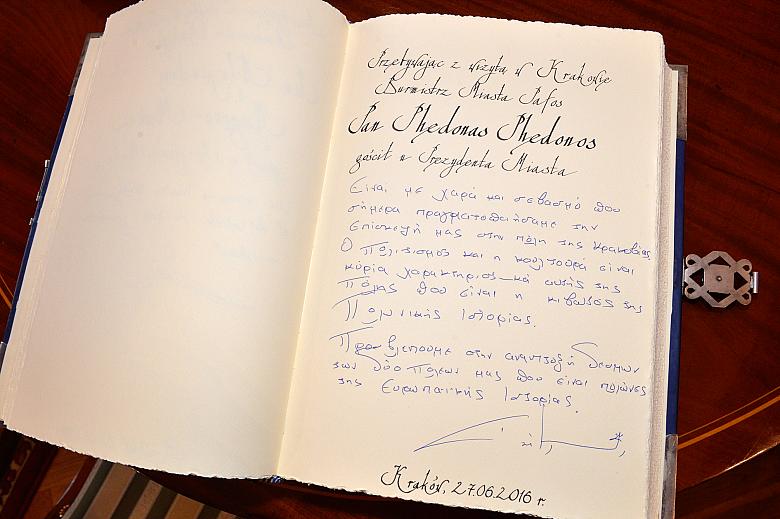 Przebywając z wizytą w Krakowie
Burmistrz Miasta Pafos
Pan Phedonas Phedonos
gościł u Prezydenta Miasta
Είναι με χαρά και σεβασμό που
σήμερα πραγματοποιήσαμε την
επίσκεψή μας στην πόλη της Κρακοβίας.
Ο πολιτισμός και η κουλτούρα είναι
κύρια χαρακτηριστικά αυτής της
πόλης που είναι η κιβωτός της
Πολωνικής Ιστορίας.
Προσβλέπουμε στην ανάπτυξη δεσμών
των δύο πόλεων μας που είναι πυλώνες
της Ευρωπαϊκής Ιστορίας.
Kraków, 27.06.2016 r.